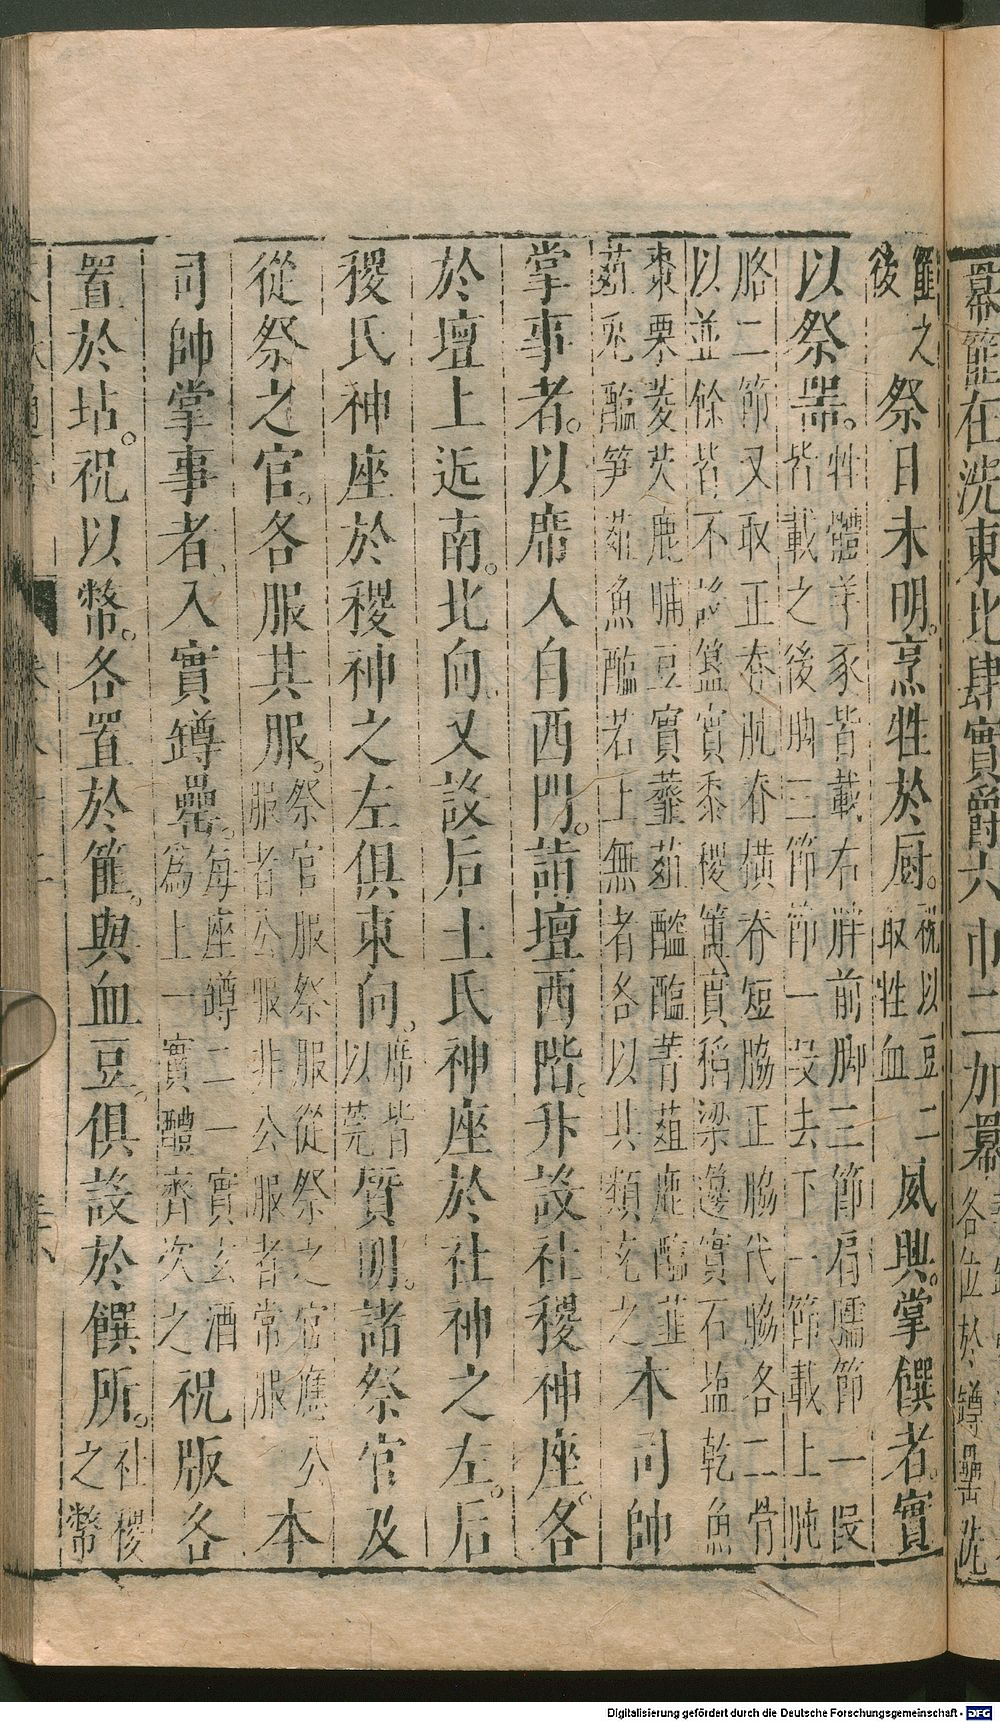 冪篚在洗東北肆實爵六巾二加冪
各位於罇罍洗
篚之
後
祭日未明。烹牲於厨。
祝以豆二
取牲血
夙興。掌饌者。實
以祭器。
牲體羊豕皆載右胖前脚三節肩臑節一段
皆載之後脚三節節一段去下一節載上肫
胳二節又取正脊脡脊橫脊短脇正脇代脇各二骨
以並餘皆不設簋實黍稷簠實稻粱籩實石塩乾魚
棗栗菱芡鹿晡豆實韮葅醓醢菁葅鹿醢韮
葅兎醢笋葅魚醢若土無者各以其類充之
本司帥
掌事者。以席入自西門。詣壇西階。升設社稷神座。各
於壇上近南。北向。又設后土氏神座於社神之左。后
稷氏神座於稷神之左俱東向。
席皆
以莞
質明。諸祭官及
從祭之官。各服其服。
祭官服祭服從祭之官應公
服者公服非公服者常服
本
司帥掌事者、入實罇罍。
每座罇二一實玄酒
為上一實醴齊次之
祝版各
置於坫。祝以幣。各置於篚。與血豆。俱設於饌所。
社稷
之幣
Digitalisierung gefördert durch die Deutsche Forschungsgemeinschaft - DFG